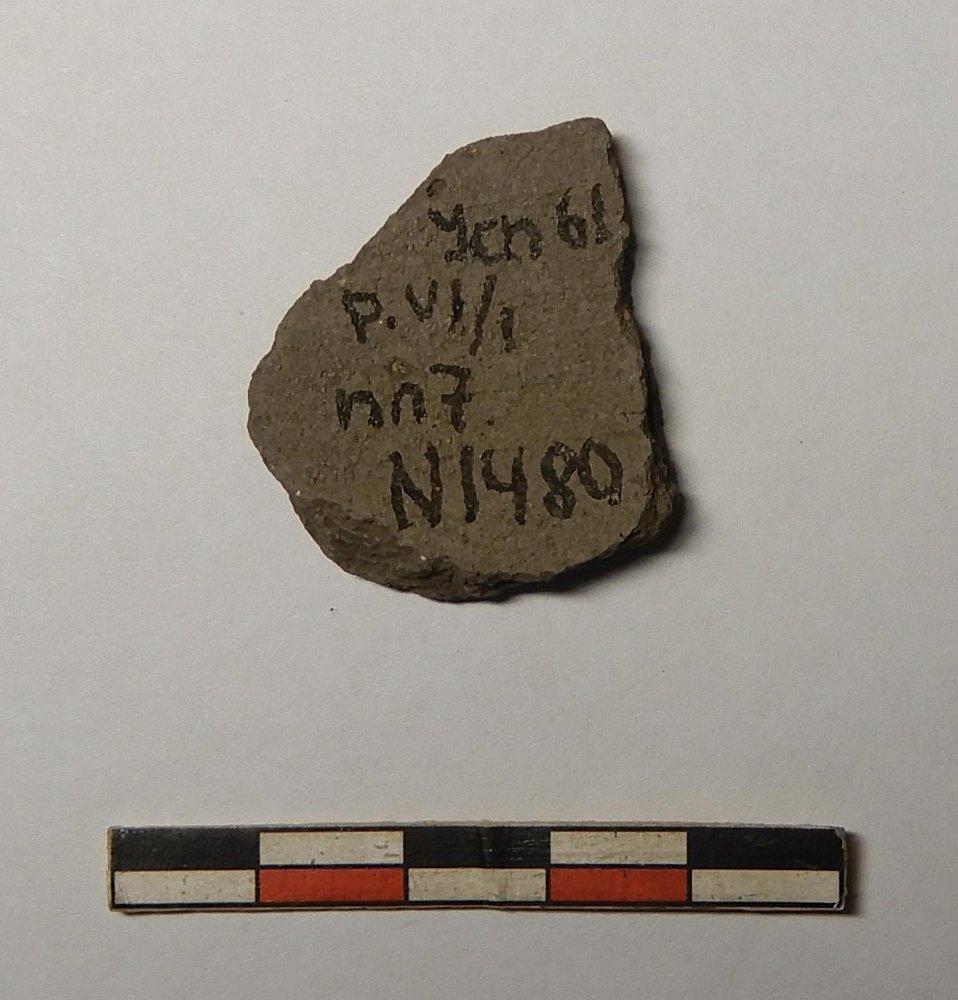 Усп 61
р. VI/1
пп7.
N1480